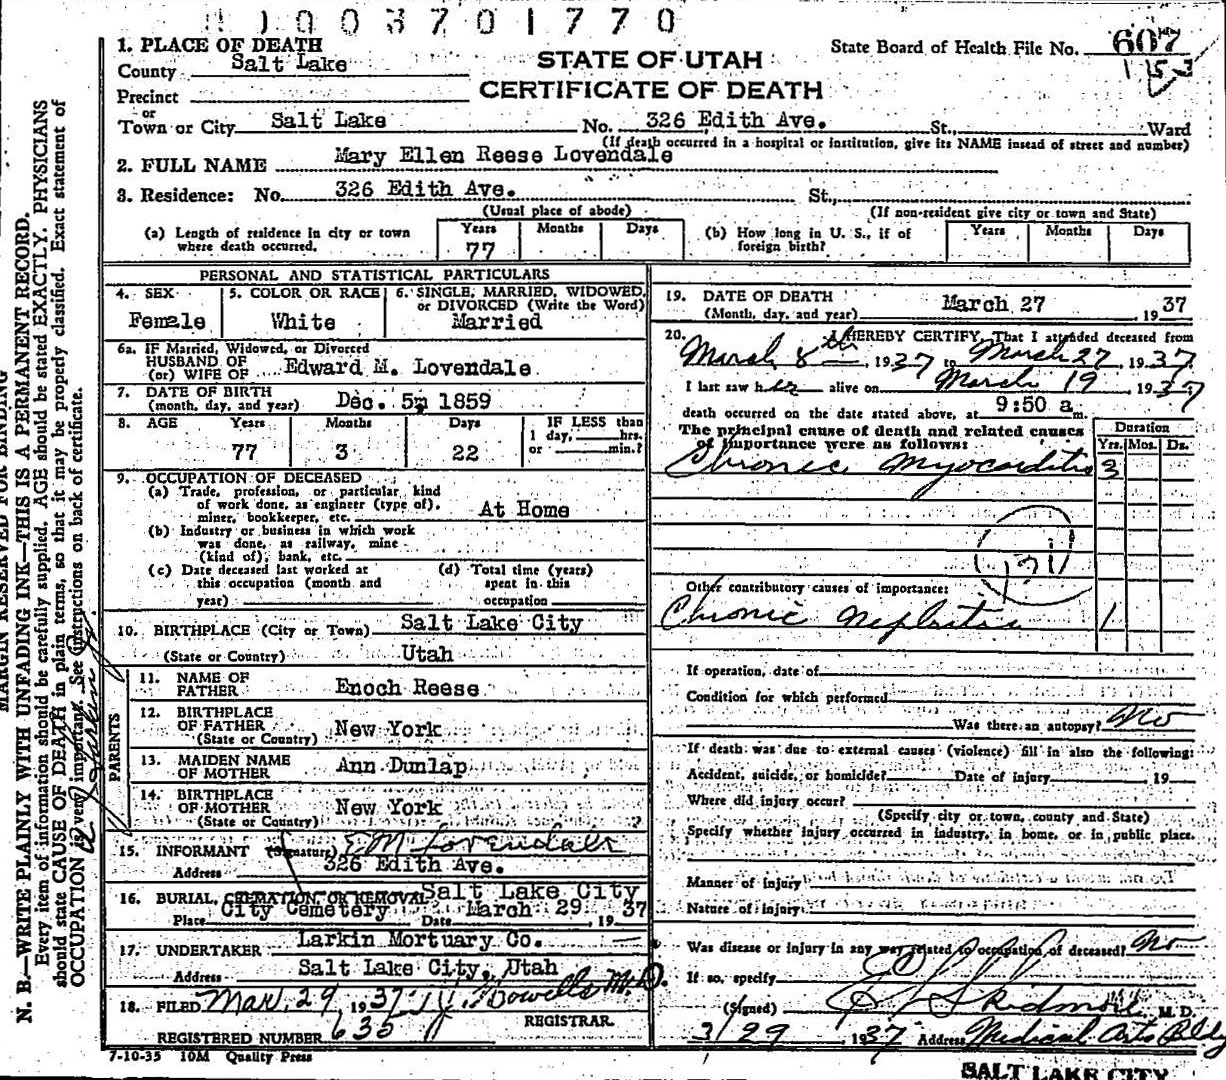 003701770
1. PLACE OF DEATH
County Salt Lake
Precinct
or
Town or City Salt Lake No. 326 Edith Ave. St., Ward
STATE OF UTAH
CERTIFICATE OF DEATH
State Board of Health File No. 607
(If death occurred in a hospital or institution, give its NAME instead of street and number)
2. FULL NAME Mary Ellen Reese Lovendale
3. Residence: No. 326 Edith Ave. St.,
(Usual place of abode) (If non-resident give city or town and State)
(a) Length of residence in city or town where death occurred. Years 77 Months Days
(b) How long in U. S., if of foreign birth? Years Months Days
PERSONAL AND STATISTICAL PARTICULARS
4. SEX Female
5. COLOR OR RACE White
6. SINGLE, MARRIED, WIDOWED, or DIVORCED (Write the Word) Married
6a. IF Married, Widowed, or Divorced
HUSBAND OF
(or) WIFE OF Edward M. Lovendale
7. DATE OF BIRTH
(month, day, and year) Dec. 5, 1859
8. AGE Years 77 Months 3 Days 22
IF LESS than
1 day, hrs.
or min.?
9. OCCUPATION OF DECEASED
(a) Trade, profession, or particular kind
of work done, as engineer (type of),
miner, bookkeeper, etc. At Home
(b) Industry or business in which work
was done, as railway, mine
(kind of), bank, etc.
(c) Date deceased last worked at
this occupation (month and
year)
(d) Total time (years)
spent in this
occupation
10. BIRTHPLACE (City or Town) Salt Lake City
(State or Country) Utah
PARENTS
11. NAME OF FATHER Enoch Reese
12. BIRTHPLACE OF FATHER (State or Country) New York
13. MAIDEN NAME OF MOTHER Ann Dunlap
14. BIRTHPLACE OF MOTHER (State or Country) New York
15. INFORMANT (Signature) E M Lovendale
Address 326 Edith Ave.
16. BURIAL, CREMATION, OR REMOVAL Salt Lake City
Place City Cemetery Date March 29, 1937
17. UNDERTAKER Larkin Mortuary Co.
Address Salt Lake City, Utah
18. FILED Mar. 29 1937 Howells M.D.
REGISTRAR
REGISTERED NUMBER 635
7-10-35 10M Quality Press
19. DATE OF DEATH
(Month, day, and year) March 27, 1937
20. I HEREBY CERTIFY, That I attended deceased from
March 8th, 1937 to March 27, 1937
I last saw her alive on March 19, 1937
death occurred on the date stated above, at 9:50 a m.
The principal cause of death and related causes
of importance were as follows:
Duration
Yrs. Mos. Ds.
Chronic Myocarditis 3
131
Other contributory causes of importance:
Chronic Nephritis 1
If operation, date of
Condition for which performed
Was there an autopsy? No
If death was due to external causes (violence) fill in also the following:
Accident, suicide, or homicide? Date of injury 19
Where did injury occur?
(Specify city or town, county and State)
Specify whether injury occurred in industry, in home, or in public place.
Manner of injury
Nature of injury
Was disease or injury in any way related to occupation of deceased? No
If so, specify
(Signed) Skidmore, M. D.
3/29 1937 Address Medical Arts Bldg
SALT LAKE CITY
MARGIN RESERVED FOR BINDING
N. B.—WRITE PLAINLY WITH UNFADING INK—THIS IS A PERMANENT RECORD.
Every item of information should be carefully supplied. AGE should be stated EXACTLY. PHYSICIANS
should state CAUSE OF DEATH in plain terms, so that it may be properly classified. Exact statement of
OCCUPATION is very important. See instructions on back of certificate.